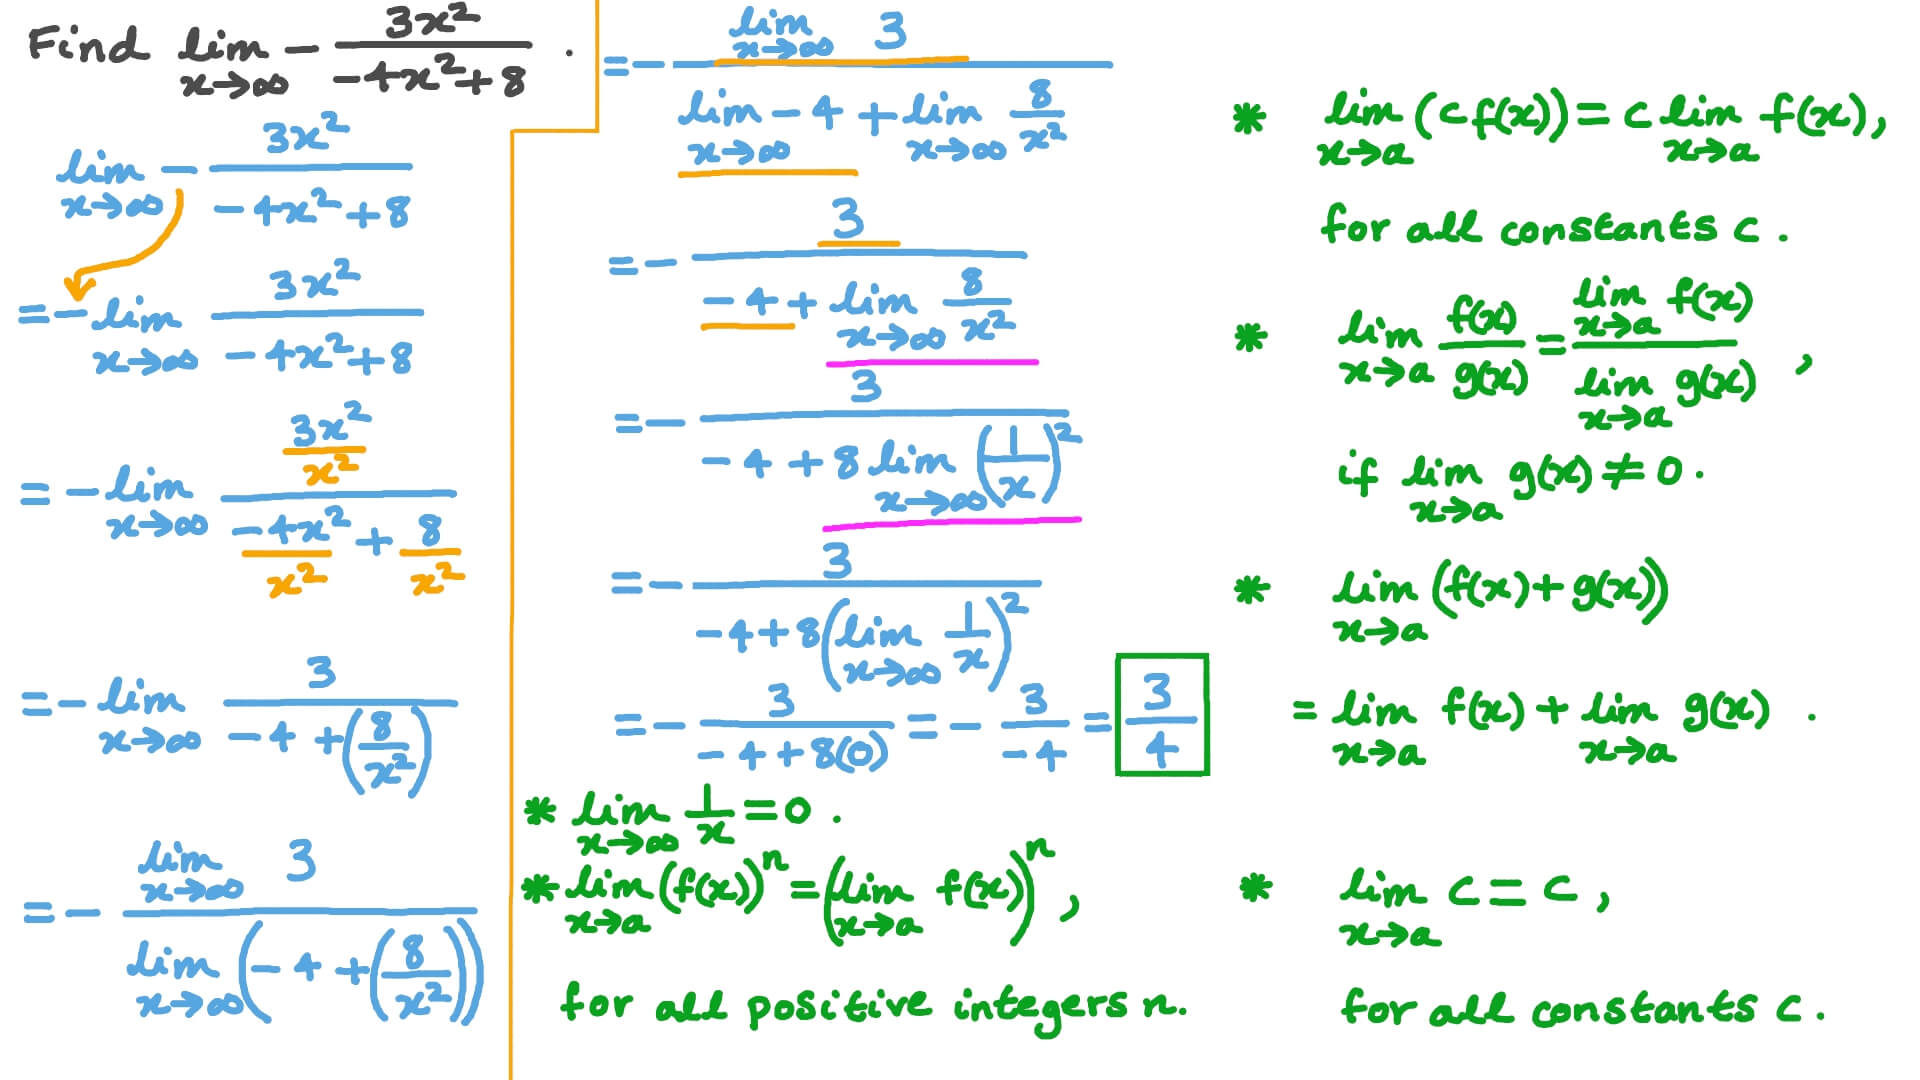 Find lim_{x→∞} - 3x²/(-4x²+8) .
lim_{x→∞} - 3x²/(-4x²+8)
= - lim_{x→∞} 3x²/(-4x²+8)
= - lim_{x→∞} (3x²/x²)/(-4x²/x² + 8/x²)
= - lim_{x→∞} 3/(-4 + (8/x²))
= - (lim_{x→∞} 3)/(lim_{x→∞} (-4 + (8/x²)))
= - (lim_{x→∞} 3)/(lim_{x→∞} -4 + lim_{x→∞} 8/x²)
= - 3/(-4 + lim_{x→∞} 8/x²)
= - 3/(-4 + 8 lim_{x→∞} (1/x)²)
= - 3/(-4 + 8(lim_{x→∞} 1/x)²)
= - 3/(-4 + 8(0)) = - 3/-4 = 3/4
* lim_{x→∞} 1/x = 0 .
* lim_{x→a} (f(x))^n = (lim_{x→a} f(x))^n ,
for all positive integers n.
* lim_{x→a} (c f(x)) = c lim_{x→a} f(x),
for all constants c .
* lim_{x→a} f(x)/g(x) = (lim_{x→a} f(x))/(lim_{x→a} g(x)) ,
if lim_{x→a} g(x) ≠ 0 .
* lim_{x→a} (f(x) + g(x))
= lim_{x→a} f(x) + lim_{x→a} g(x) .
* lim_{x→a} c = c ,
for all constants c .